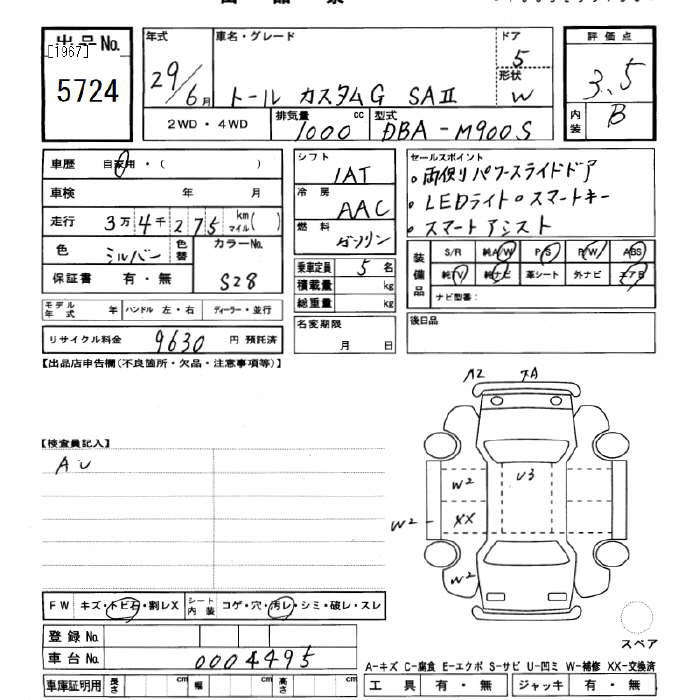 出品No.
[1967]
5724
年式
29/6月
車名・グレード
トール カスタムG SAⅡ
ドア
5
形状
W
評価点
3.5
内装
B
2WD・4WD
排気量
1000
cc
型式
DBA-M900S
車歴
自家用・(　)
車検
年　月
走行
3万4千275
km
マイル( )
色
シルバー
色替
カラーNo.
S28
保証書　有・無
モデル年式　年
ハンドル 左・右
ディーラー・並行
リサイクル料金
9630
円 預託済
シフト
IAT
冷房
AAC
燃料
ガソリン
乗車定員
5名
積載量　kg
総重量　kg
名変期限
月　日
セールスポイント
○両側パワースライドドア
○LEDライト○スマートキー
○スマートアシスト
装備品
S/R　純A/W　P/S　P/W　ABS
純TV　純ナビ　革シート　外ナビ　エアB
ナビ型番:
後日品
【出品店申告欄(不良箇所・欠品・注意事項等)】
【検査員記入】
AU
A2
XA
W2
U3
W2
XX
W2
スペア
FW
キズ・トビ石・割レX
シート内装
コゲ・穴・汚レ・シミ・破レ・スレ
登録No.
車台No.
0004495
車庫証明用
長さ　cm
幅　cm
高さ　cm
A-キズ C-腐食 E-エクボ S-サビ U-凹ミ W-補修 XX-交換済
工具　有・無
ジャッキ　有・無